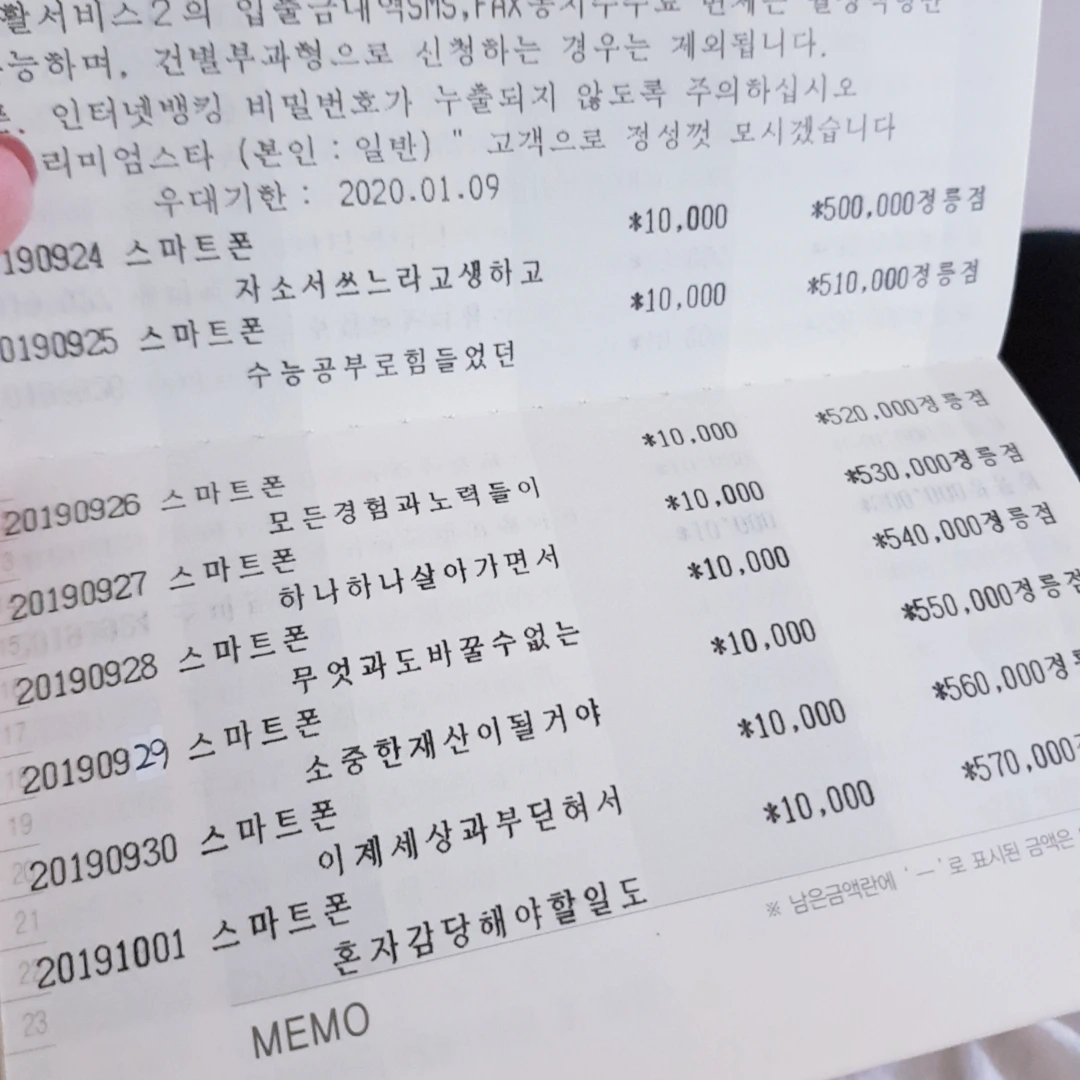 활서비스2의 입출금내역SMS,FAX통지수수료 면제는
능하며, 건별부과형으로 신청하는 경우는 제외됩니다.
인터넷뱅킹 비밀번호가 누출되지 않도록 주의하십시오
리미엄스타 (본인 : 일반) " 고객으로 정성껏 모시겠습니다
우대기한 : 2020.01.09
190924 스마트폰 *10,000 *500,000정릉점
자소서쓰느라고생하고
0190925 스마트폰 *10,000 *510,000정릉점
수능공부로힘들었던
20190926 스마트폰 *10,000 *520,000정릉점
모든경험과노력들이
20190927 스마트폰 *10,000 *530,000정릉점
하나하나살아가면서
20190928 스마트폰 *10,000 *540,000정릉점
무엇과도바꿀수없는
20190929 스마트폰 *10,000 *550,000정릉점
소중한재산이될거야
20190930 스마트폰 *10,000 *560,000정
이제세상과부딛혀서
20191001 스마트폰 *10,000 *570,000
혼자감당해야할일도
※ 남은금액란에 '—'로 표시된 금액은
17
19
21
22
23
MEMO